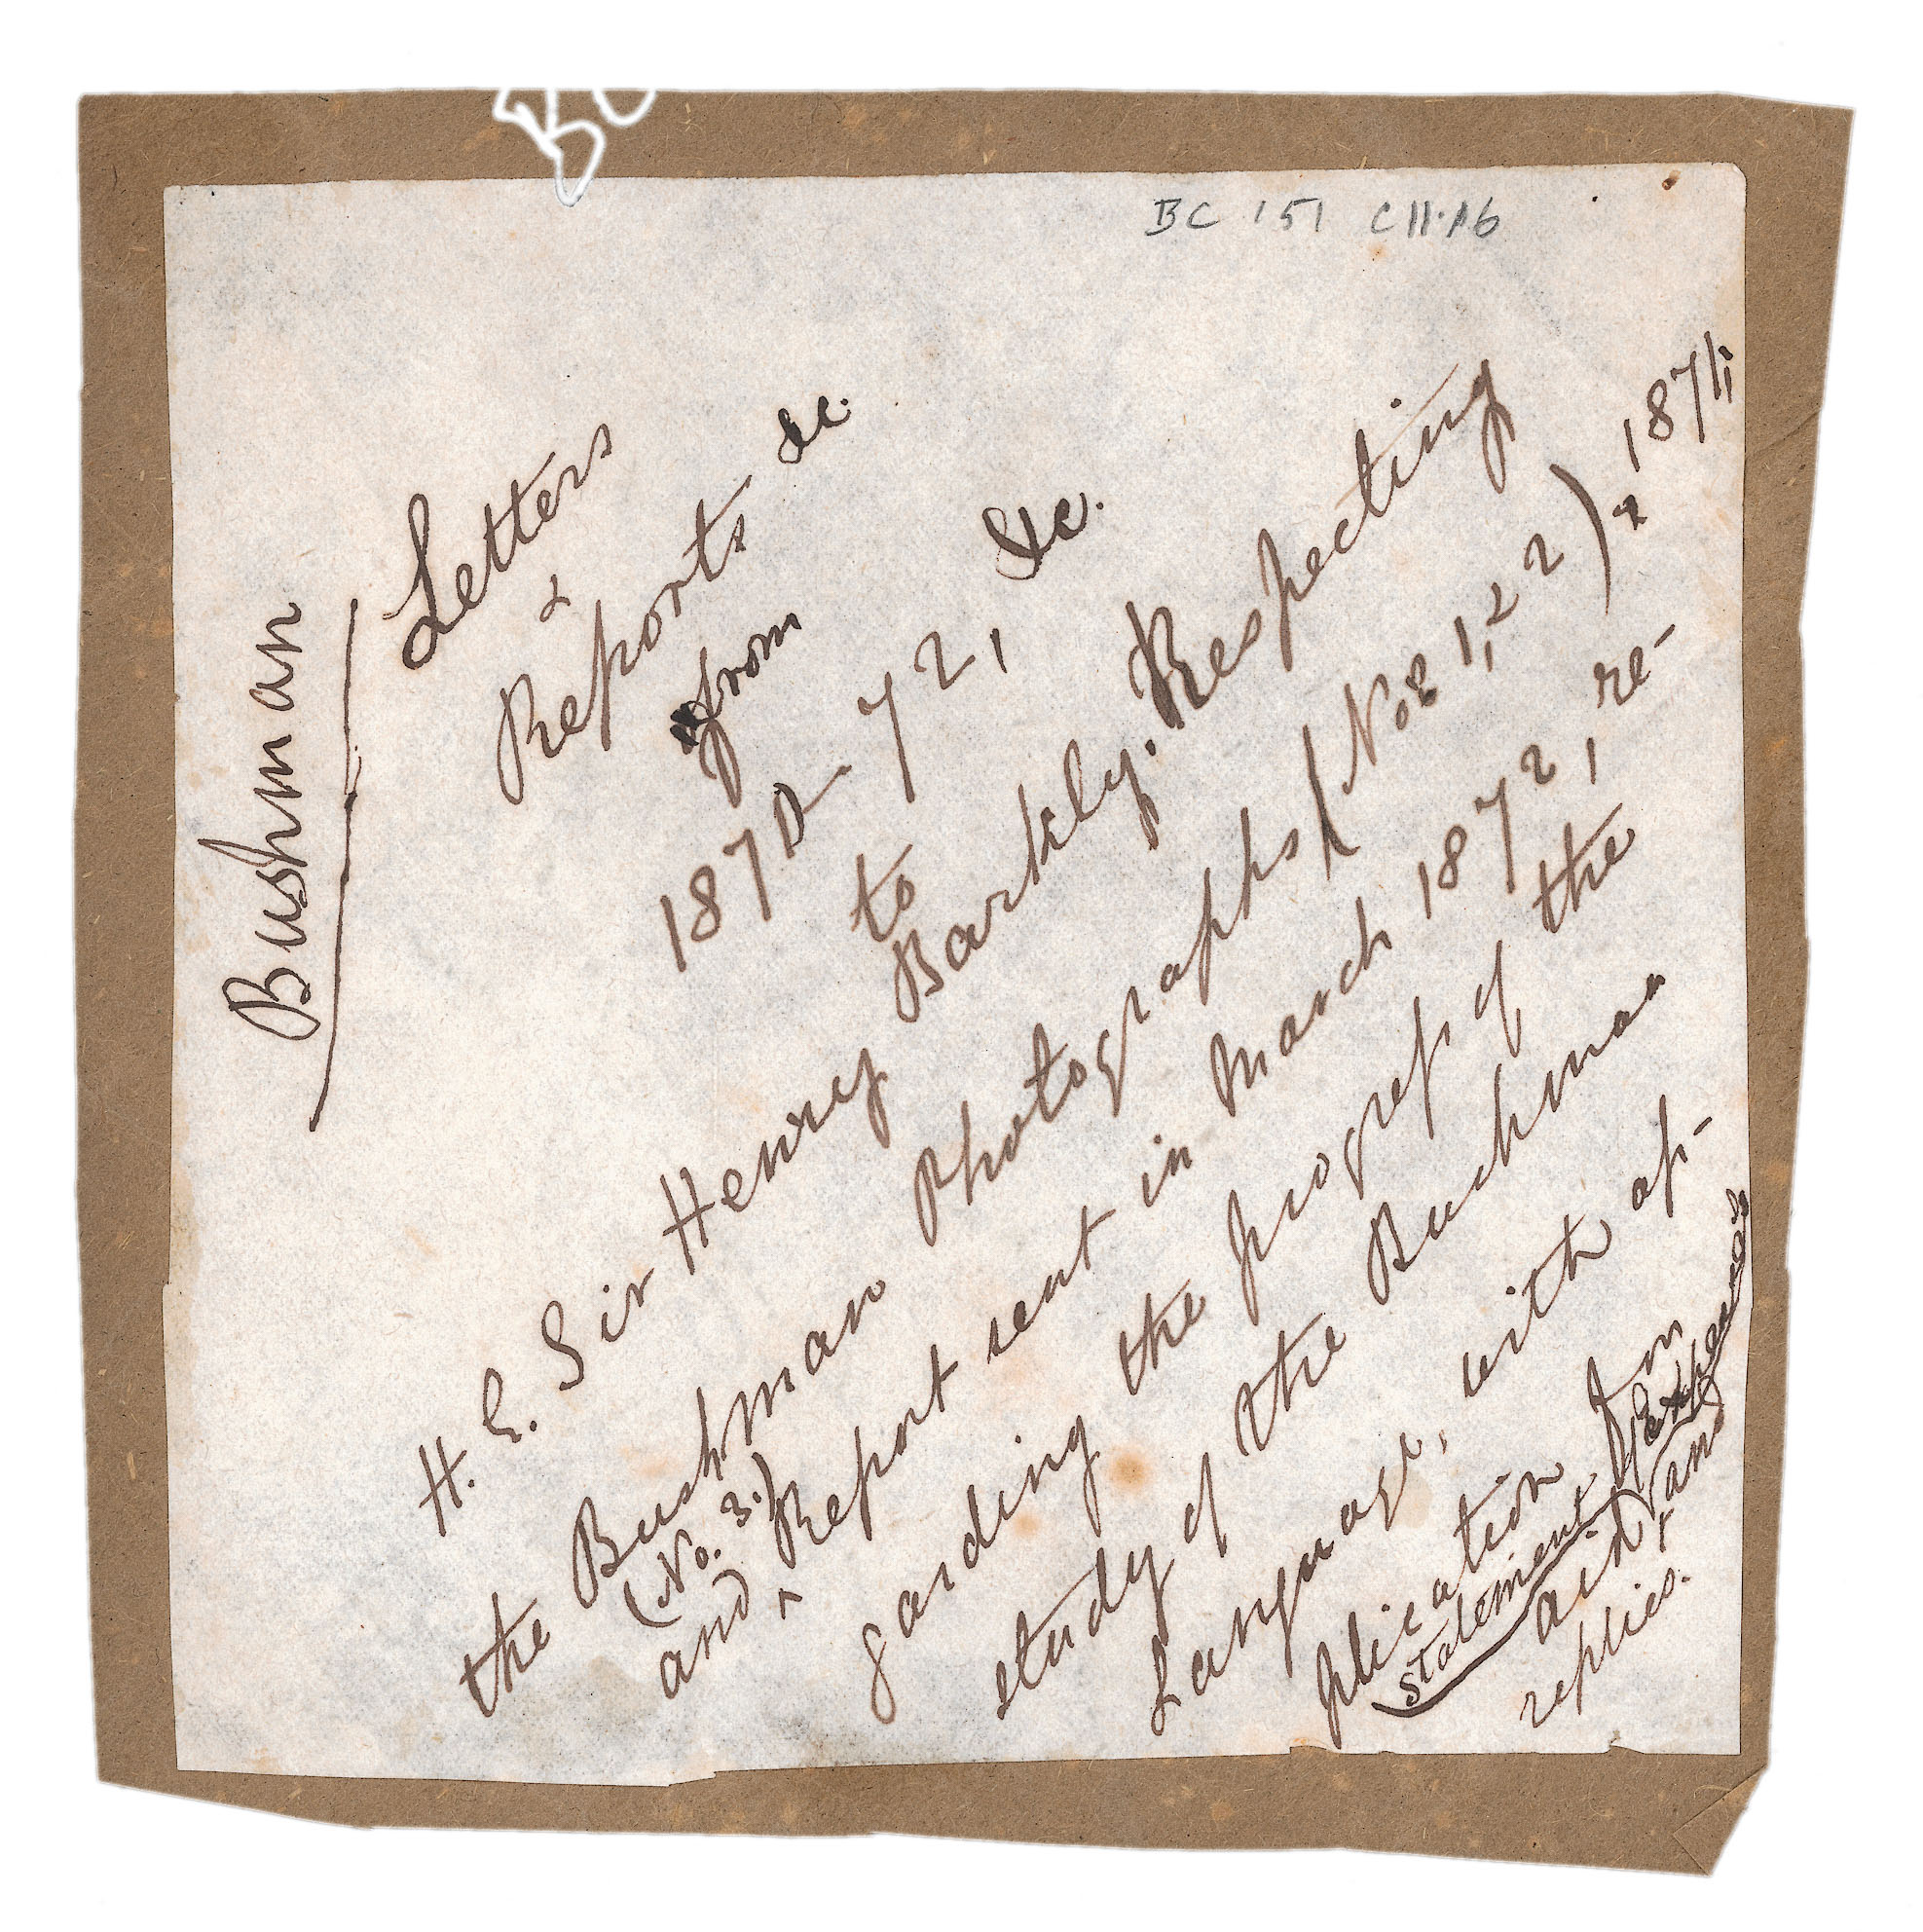 BC 151 C11.16
Bushman
Letters
&
Reports &c.
from
1870-72, &c.
to
H. E. Sir Henry Barkly. Respecting
the Bushman Photographs (Nos 1, & 2), 1871;
(No. 3.)
and ^ Report sent in March 1872, re-
garding the progress of the
study of the Bushman
Language, with ap-
plication for
statement of expenses
aid, and
& replies.